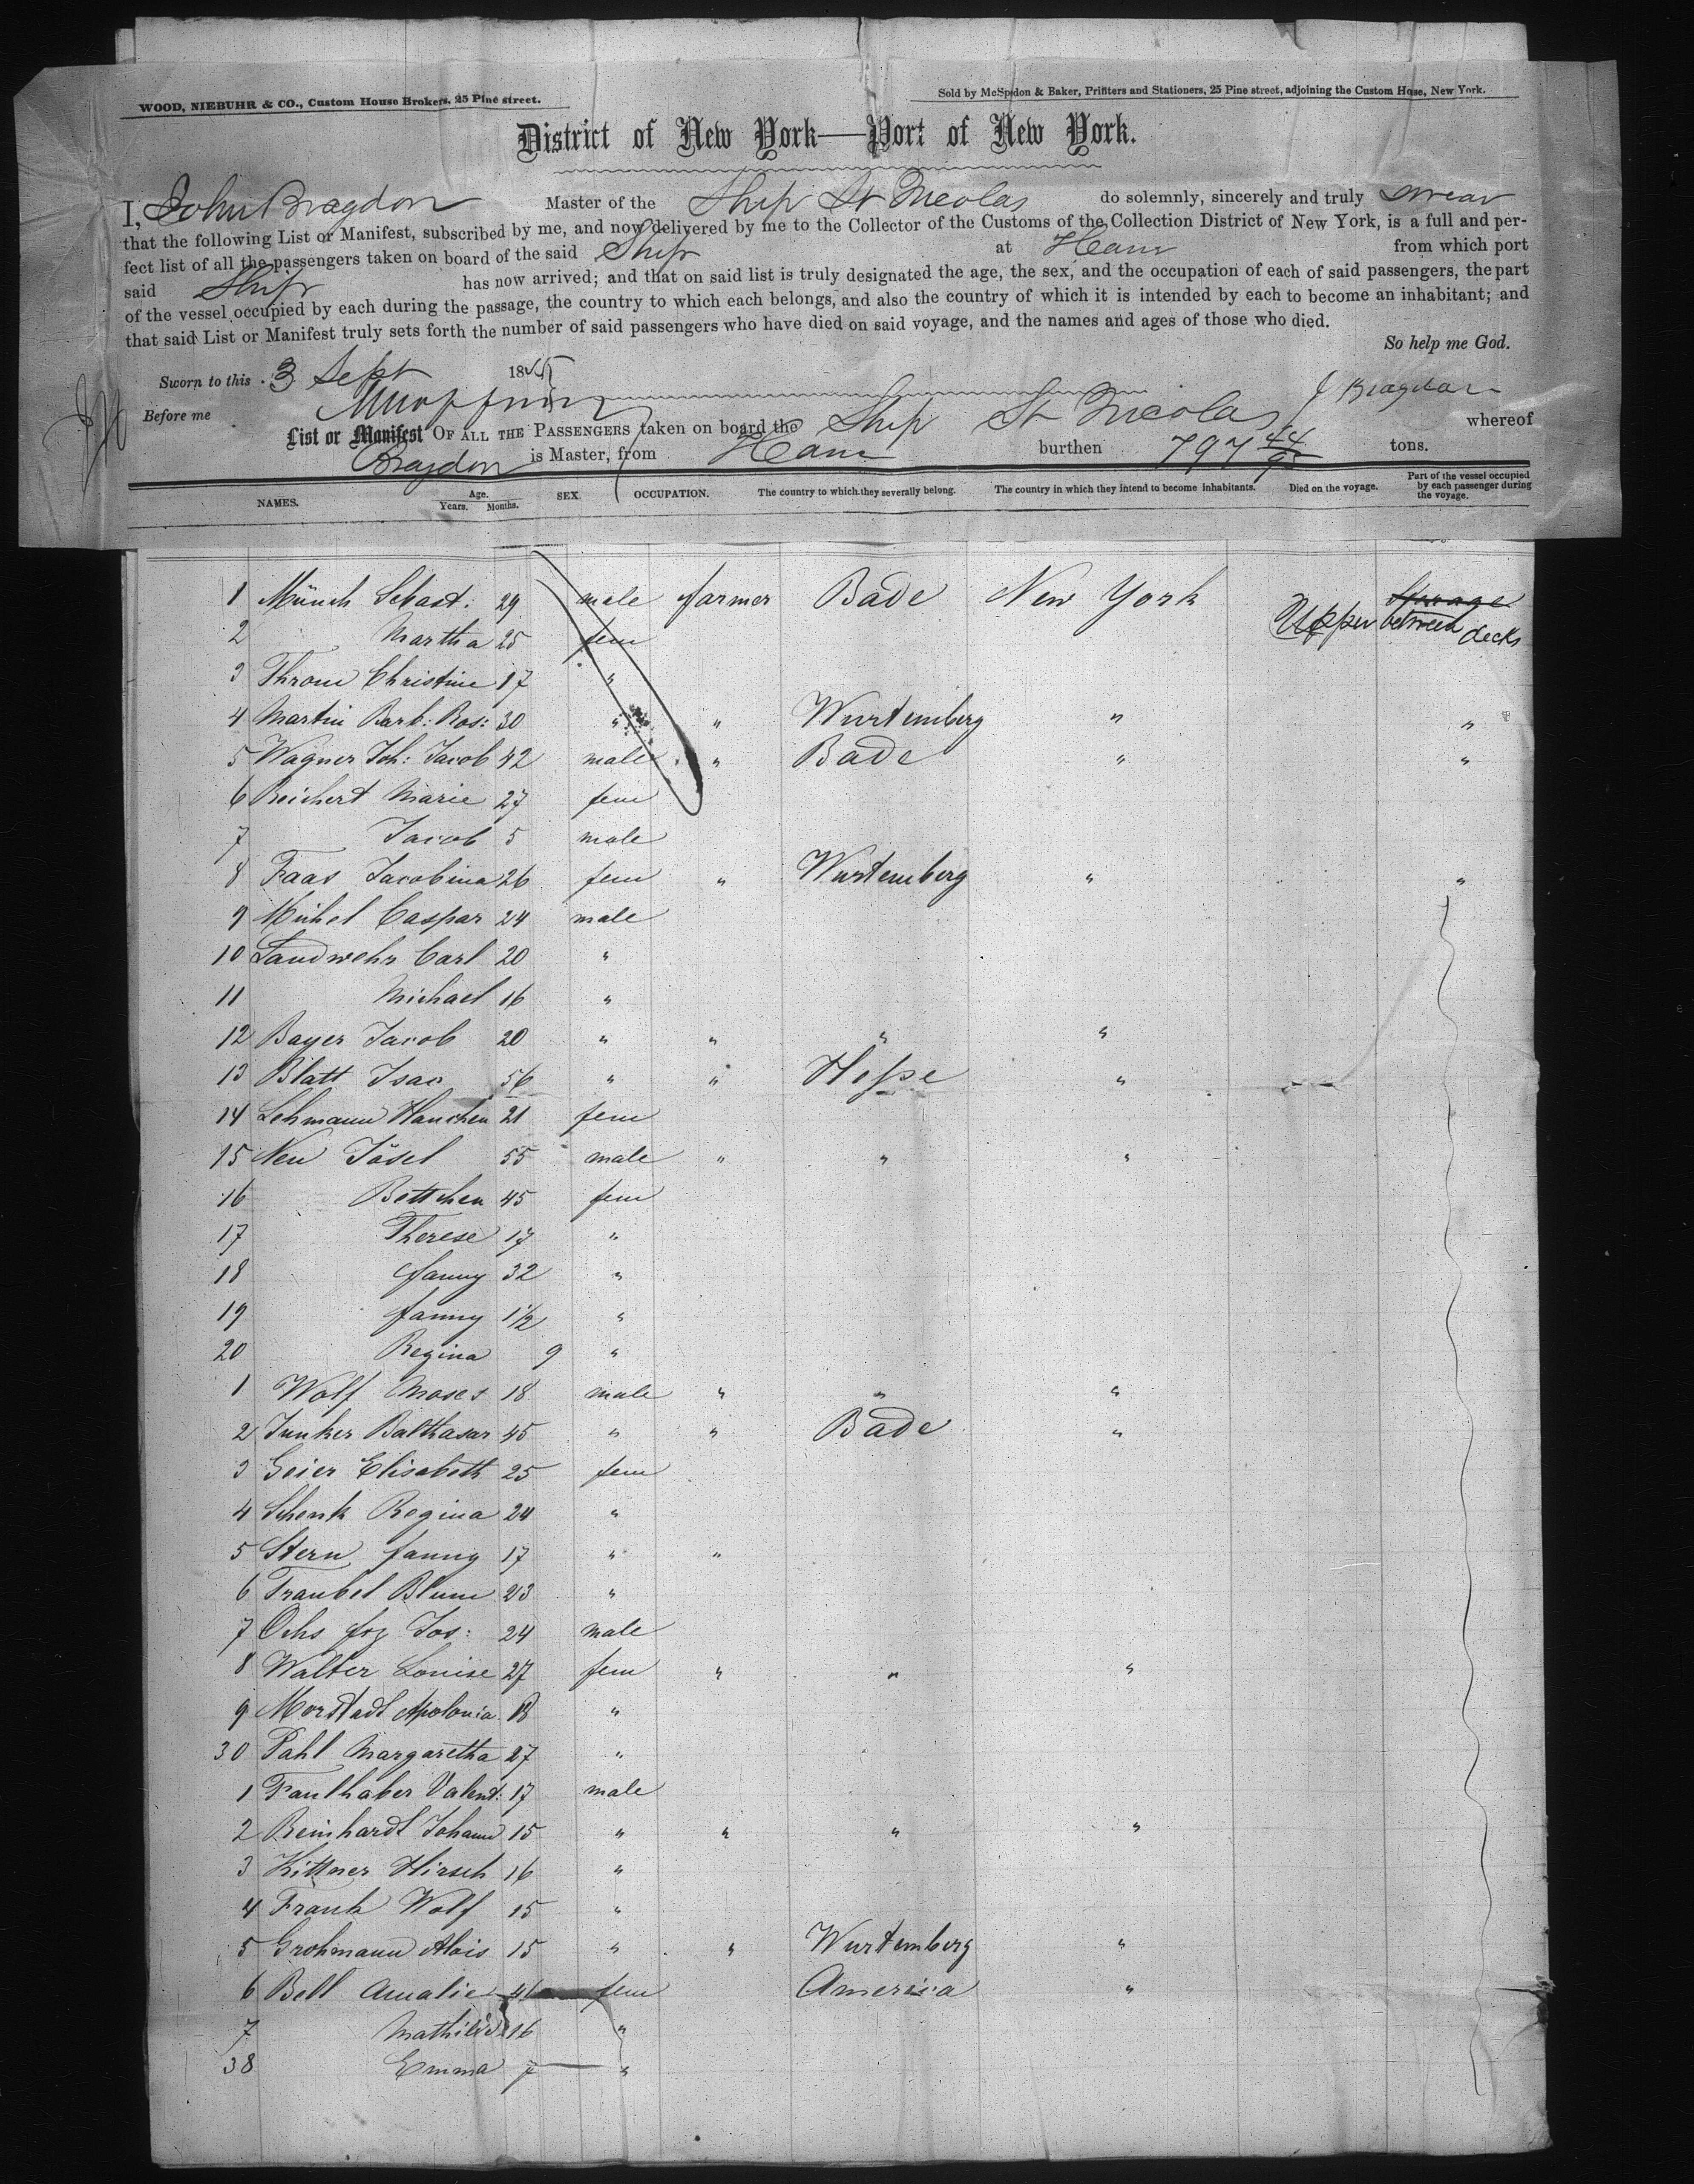 WOOD, NIEBUHR & CO., Custom House Brokers, 25 Pine street.
Sold by McSpedon & Baker, Printers and Stationers, 25 Pine street, adjoining the Custom Hose, New York.
District of New York—Port of New York.
I, John Bragdon Master of the Ship St Nicolas do solemnly, sincerely and truly swear
that the following List or Manifest, subscribed by me, and now delivered by me to the Collector of the Customs of the Collection District of New York, is a full and per-
fect list of all the passengers taken on board of the said Ship at Havre from which port
said Ship has now arrived; and that on said list is truly designated the age, the sex, and the occupation of each of said passengers, the part
of the vessel occupied by each during the passage, the country to which each belongs, and also the country of which it is intended by each to become an inhabitant; and
that said List or Manifest truly sets forth the number of said passengers who have died on said voyage, and the names and ages of those who died.
So help me God.
Sworn to this 3 Sept 18
J Bragdon
Before me
List or Manifest OF ALL THE PASSENGERS taken on board the Ship St Nicolas whereof
Bragdon is Master, from Havre burthen 797 44/95 tons.
NAMES. Age. Years. Months. SEX. OCCUPATION. The country to which they severally belong. The country in which they intend to become inhabitants. Died on the voyage. Part of the vessel occupied by each passenger during the voyage.
1 Münch Sebast: 29 male farmer Bade New York Upper between decks
2 Martha 25 fem
3 Throm Christine 17 "
4 Martin Barb: Ros: 30 " " Wurtemberg " "
5 Wagner Joh: Jacob 42 male " Bade " "
6 Reichert Marie 27 fem
7 Jacob 5 male
8 Faas Jacobina 26 fem " Wurtemberg " "
9 Michel Caspar 24 male
10 Landwehr Carl 20 "
11 Michael 16 "
12 Bayer Jacob 20 " " " "
13 Blatt Isac 56 " " Hesse "
14 Lehmann Hanchen 21 fem
15 Neu Jösel 55 male " " "
16 Bettchen 45 fem
17 Therese 17 "
18 fanny 32 "
19 fanny 1½ "
20 Regina 9 "
1 Wolf Moses 18 male " " "
2 Junker Balthasar 45 " " Bade "
3 Geier Elisabeth 25 fem
4 Schenk Regina 24 "
5 Stern fanny 17 " "
6 Traubel Blum 23 "
7 Ochs frz Jos: 24 male
8 Walter Louise 27 fem " " "
9 Morstadt Apolonia 18 "
30 Pahl Margaretha 27 "
1 Faulhaber Valent: 17 male
2 Reinhardt Johann 15 " " " "
3 Kittner Hirsch 16 "
4 Frank Wolf 15 "
5 Grohmann Alois 15 " " Wurtemberg "
6 Bell Amalie 41 fem America "
7 Mathilde 16 "
38 Emma 7 "